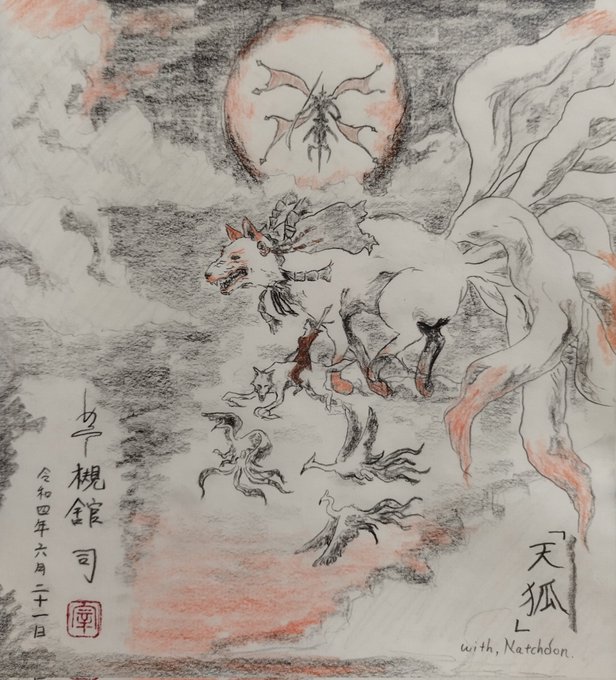 「天狐」
with, Natchdon.
槻舘 司
令和四年六月二十一日